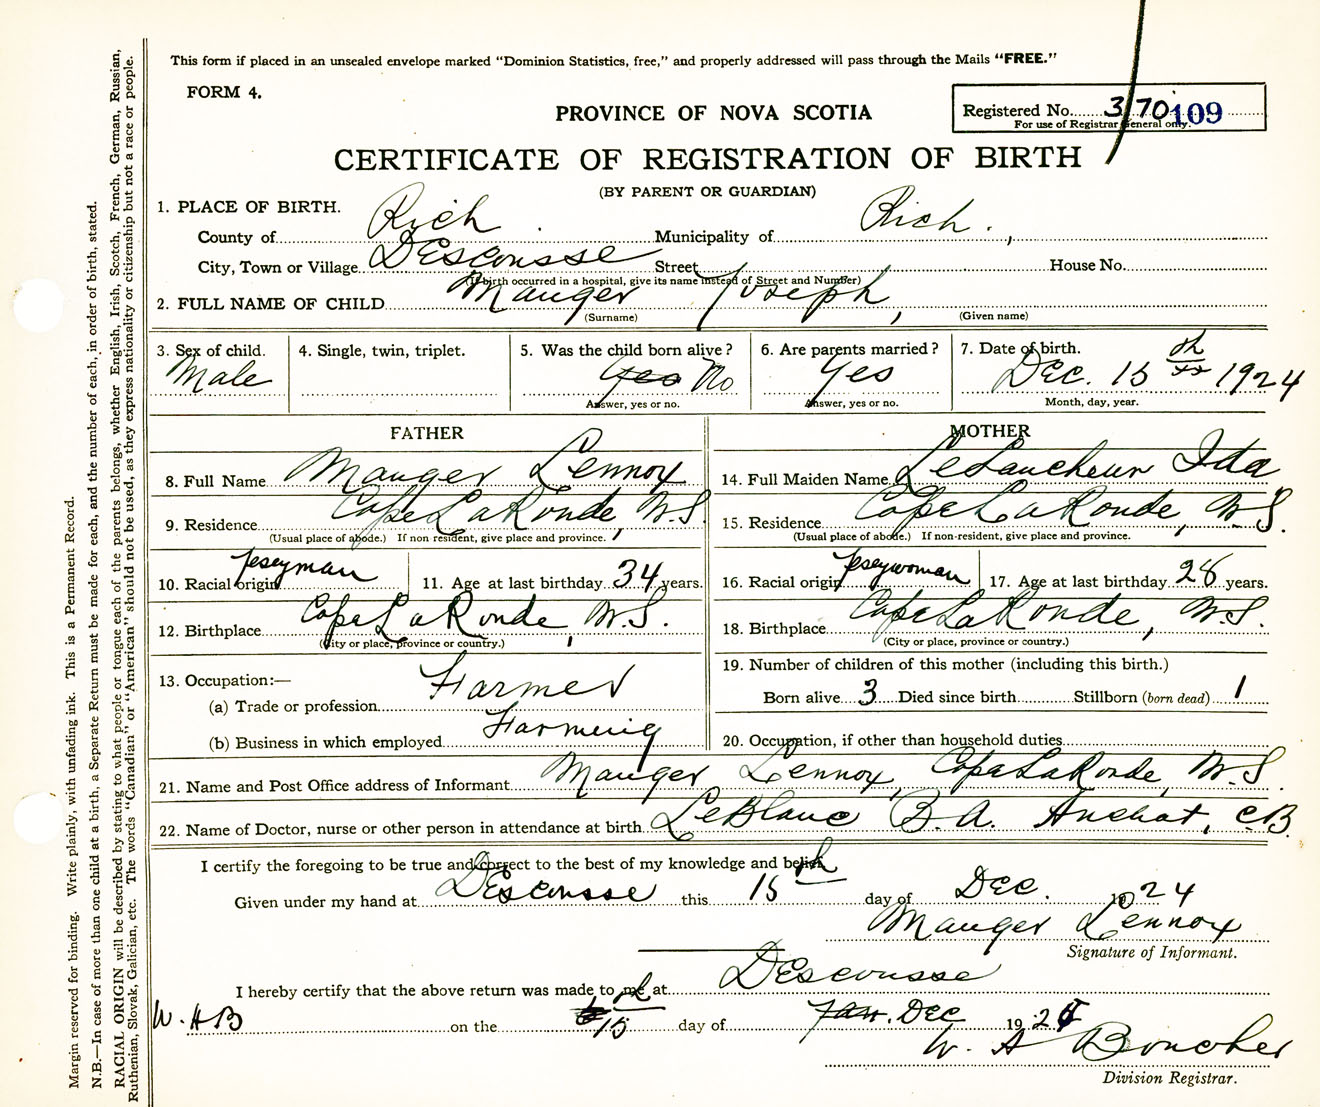 This form if placed in an unsealed envelope marked "Dominion Statistics, free," and properly addressed will pass through the Mails "FREE."
FORM 4.
PROVINCE OF NOVA SCOTIA
Registered No. 370 109
For use of Registrar General only.
CERTIFICATE OF REGISTRATION OF BIRTH
(BY PARENT OR GUARDIAN)
1. PLACE OF BIRTH.
County of Rich Municipality of Rich.,
City, Town or Village DEscousse Street House No.
(If birth occurred in a hospital, give its name instead of Street and Number)
2. FULL NAME OF CHILD Mauger Joseph,
(Surname) (Given name)
3. Sex of child. 4. Single, twin, triplet. 5. Was the child born alive? 6. Are parents married? 7. Date of birth.
Male Yes No Yes Dec. 15th 1924
Answer, yes or no. Answer, yes or no. Month, day, year.
FATHER MOTHER
8. Full Name Mauger Lennox 14. Full Maiden Name LeLaucheur Ida
9. Residence Cape LaRonde, N.S. 15. Residence Cape LaRonde, N.S.
(Usual place of abode.) If non resident, give place and province. (Usual place of abode.) If non-resident, give place and province.
10. Racial origin Jeseyman 11. Age at last birthday 34 years. 16. Racial origin Jeseywoman 17. Age at last birthday 28 years.
12. Birthplace Cape LaRonde, N.S. 18. Birthplace Cape LaRonde, N.S.
(City or place, province or country.) (City or place, province or country.)
13. Occupation:— 19. Number of children of this mother (including this birth.)
(a) Trade or profession Farmer Born alive 3 Died since birth Stillborn (born dead) 1
(b) Business in which employed Farming 20. Occupation, if other than household duties
21. Name and Post Office address of Informant Mauger Lennox, Cape LaRonde, N.S.
22. Name of Doctor, nurse or other person in attendance at birth LeBlanc B.A. Arichat, C.B.
I certify the foregoing to be true and correct to the best of my knowledge and belief.
Given under my hand at DEscousse this 15th day of Dec. 1924
Mauger Lennox
Signature of Informant.
I hereby certify that the above return was made to me at DEscousse
W.HB on the 15th day of Jan. Dec 1924
W. A Boucher
Division Registrar.
Margin reserved for binding. Write plainly, with unfading ink. This is a Permanent Record.
N.B.—In case of more than one child at a birth, a Separate Return must be made for each, and the number of each, in order of birth, stated.
RACIAL ORIGIN will be described by stating to what people or tongue each of the parents belongs, whether English, Irish, Scotch, French, German, Russian,
Ruthenian, Slovak, Galician, etc. The words "Canadian" or "American" should not be used, as they express nationality or citizenship but not a race or people.